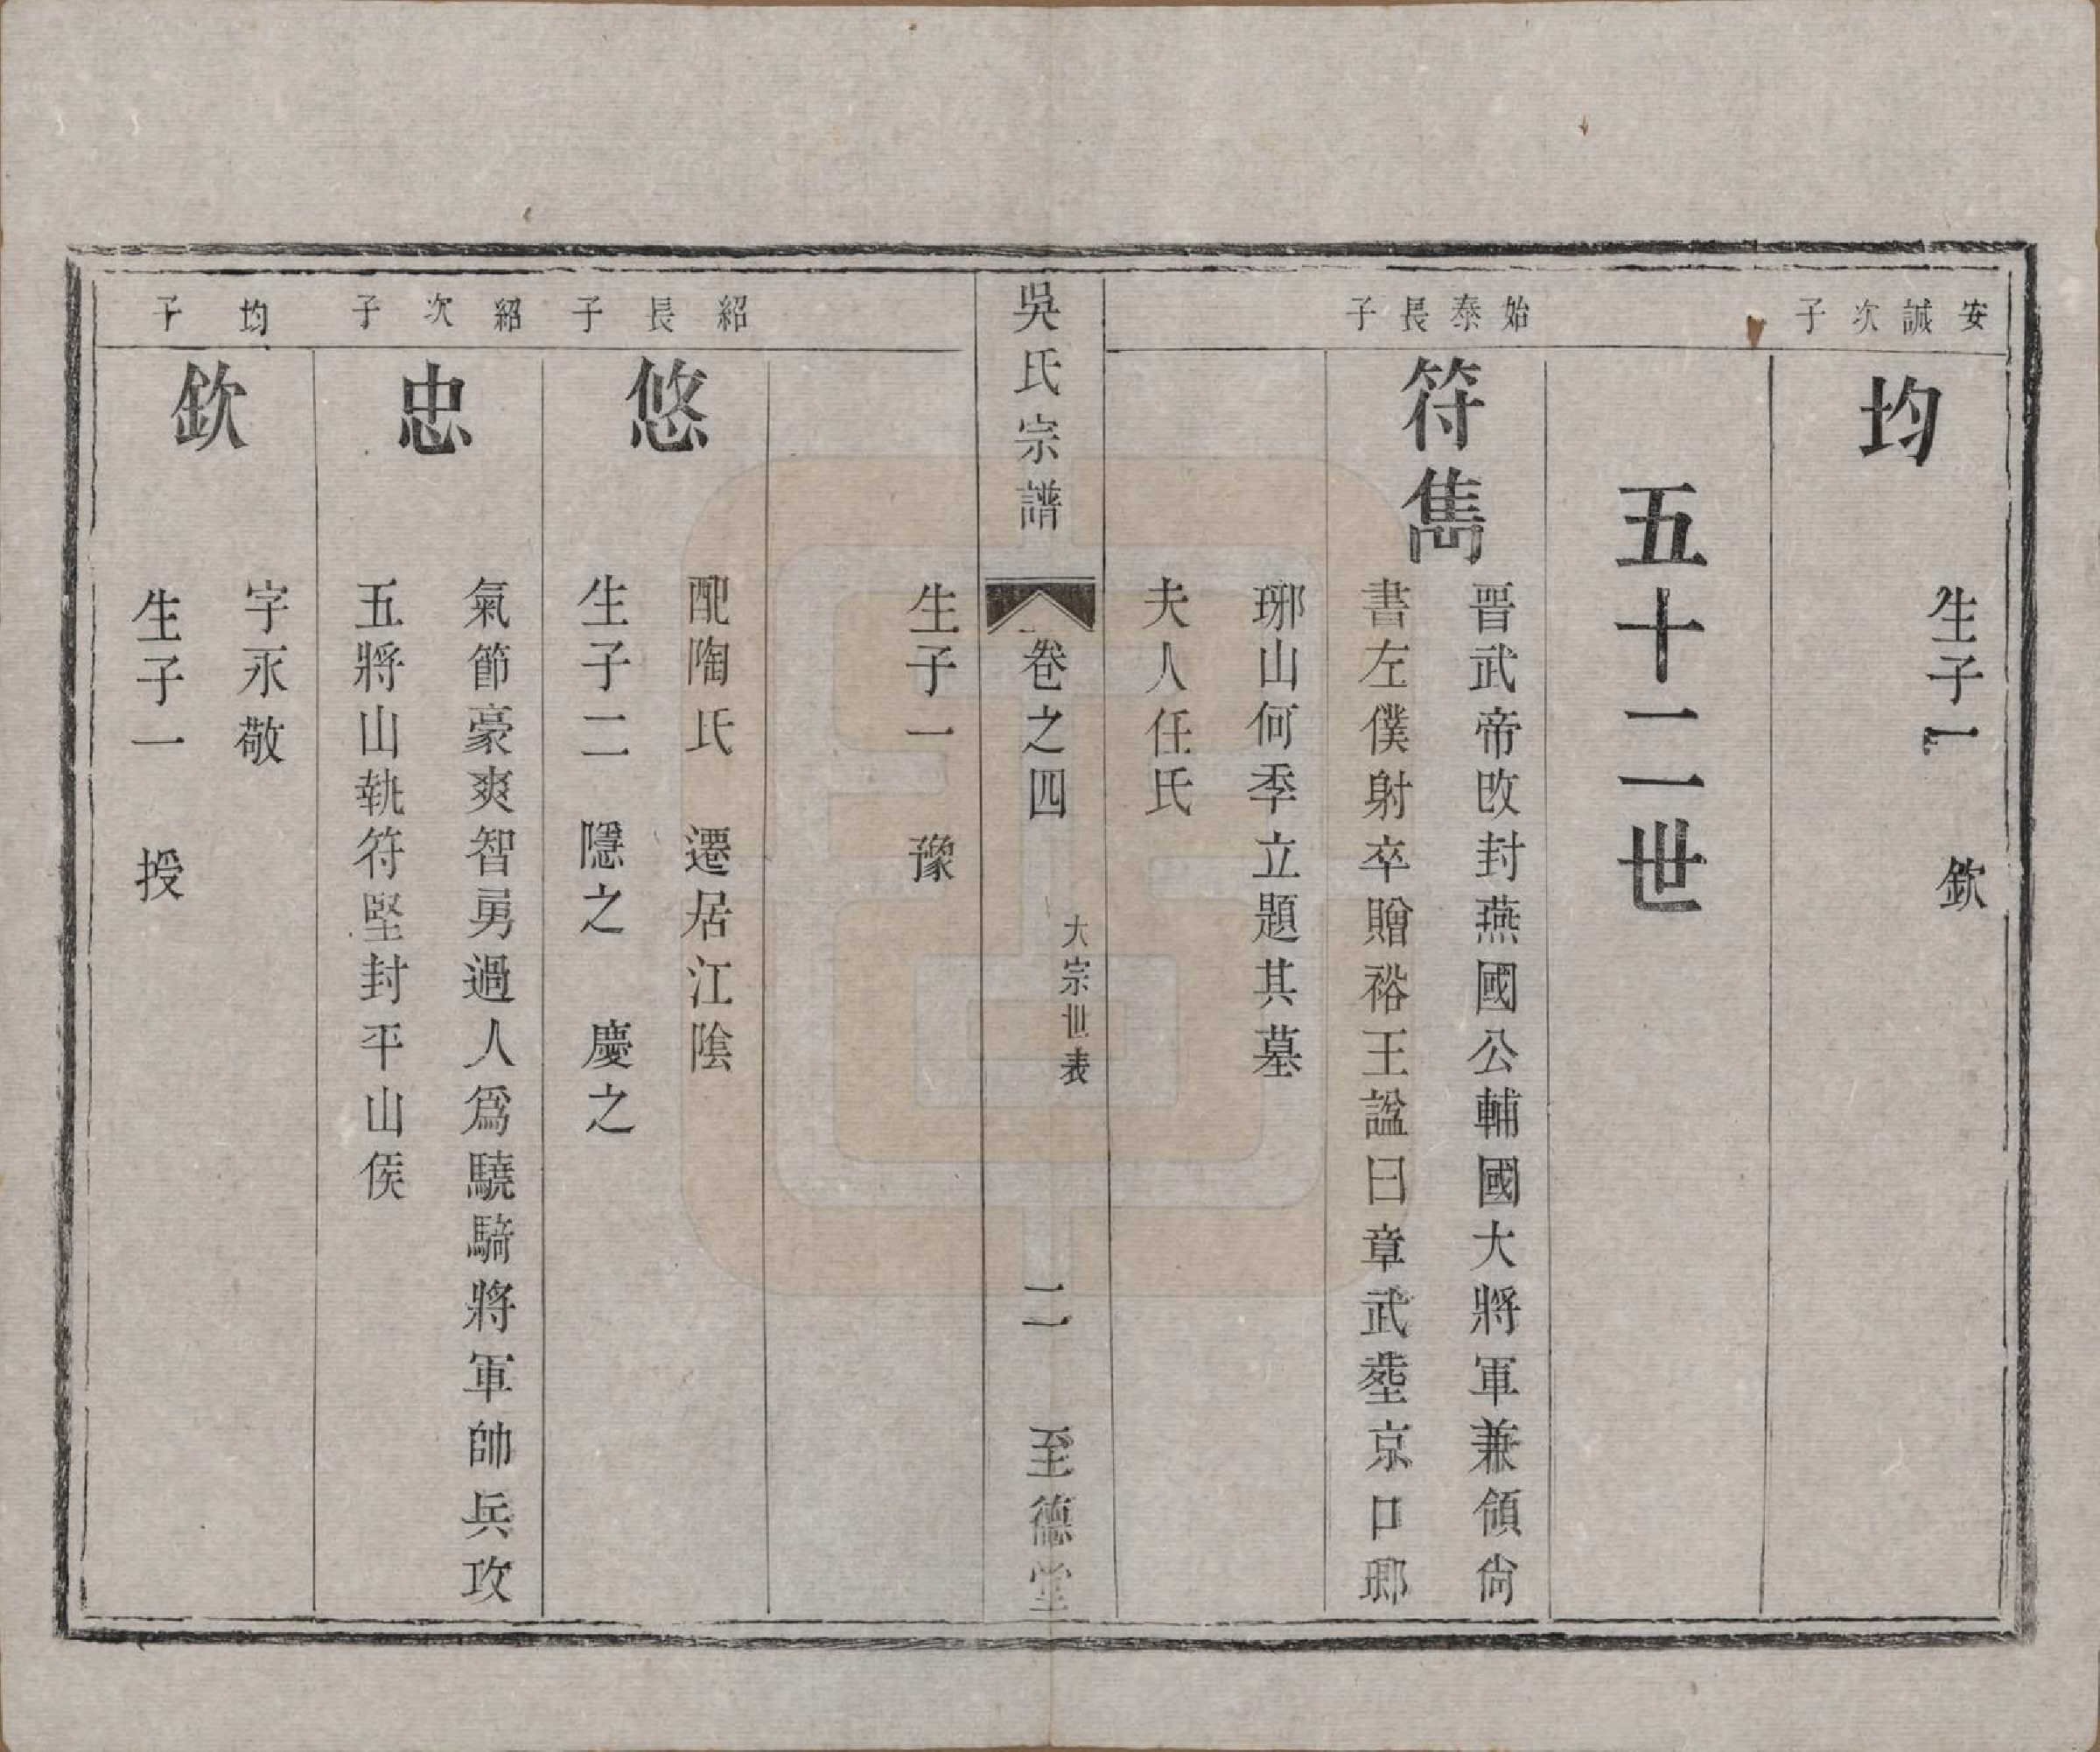 安誠次子
均
生子一　欽
五十二世
始泰長子
符雋
晋武帝改封燕國公輔國大將軍兼領尙
書左僕射卒贈裕王諡曰章武塟京口瑯
琊山何季立題其墓
夫人任氏
吳氏宗譜
卷之四
大宗世表
二
至德堂
生子一　豫
紹長子
悠
配陶氏　遷居江陰
生子二　隱之　慶之
紹次子
忠
氣節豪爽智勇過人爲驍騎將軍帥兵攻
五將山執符堅封平山侯
均子
欽
字永敬
生子一　授